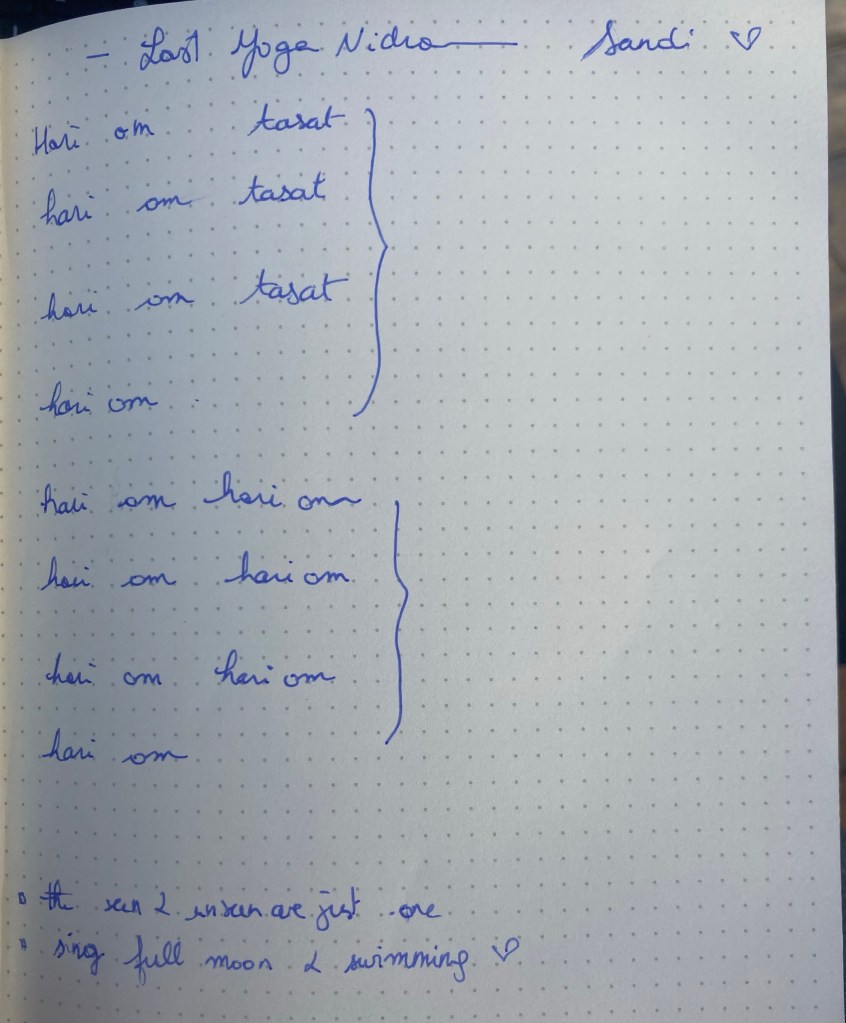 - Last Yoga Nidra — Sandi ♡
Hari om tasat
hari om tasat
hari om tasat
hari om
hari om hari om
hari om hari om
hari om hari om
hari om
the seen & unseen are just one
sing full moon & swimming ♡